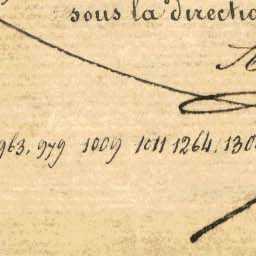 sous la directio
963, 979 1009 1011 1264, 130